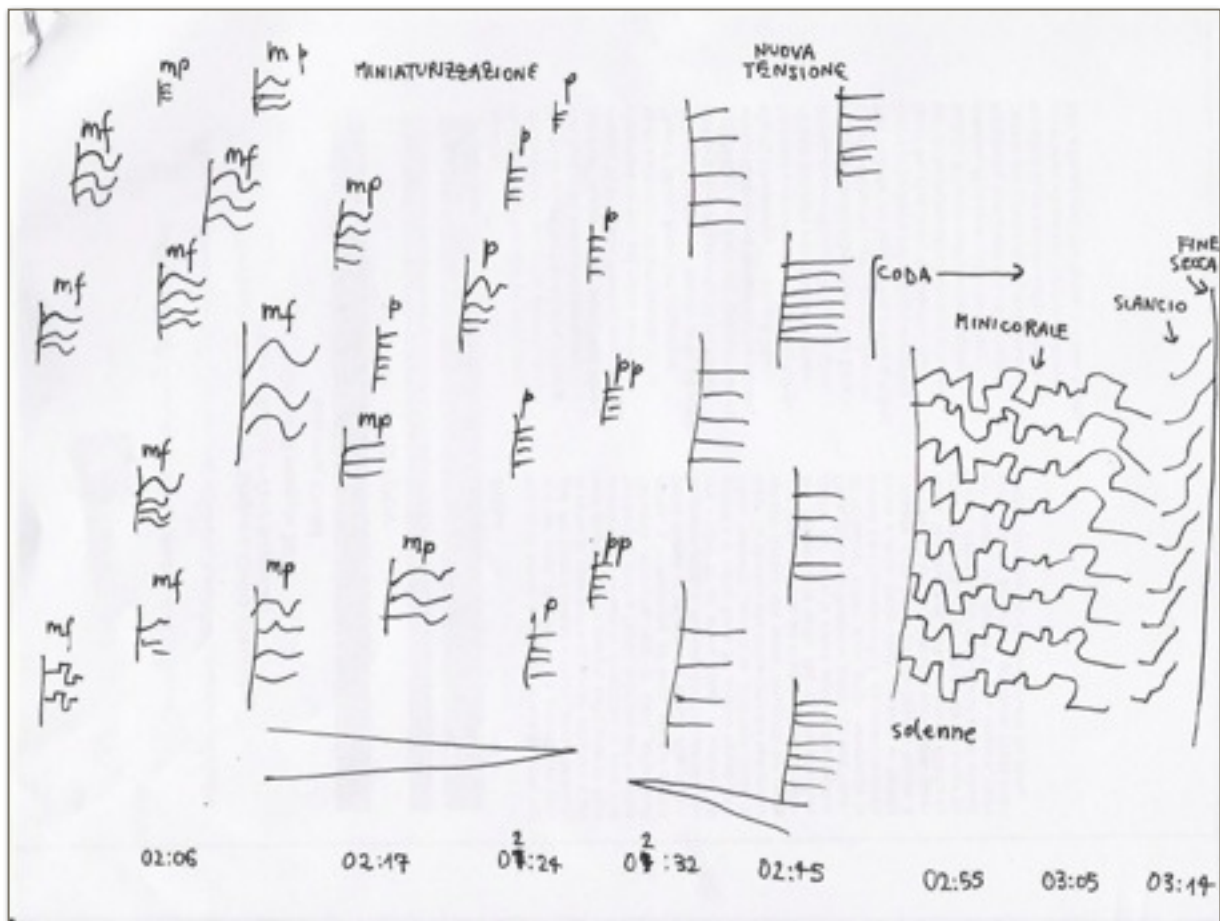 mp
mp
MINIATURIZZAZIONE
NUOVA
TENSIONE
p
mf
mf
mp
p
mf
mf
mf
p
p
p
mf
mp
p
pp
mf
mf
mp
mp
pp
p
mf
CODA
MINICORALE
SLANCIO
FINE
SECCA
solenne
02:06
02:17
02:24
02:32
02:45
02:55
03:05
03:14